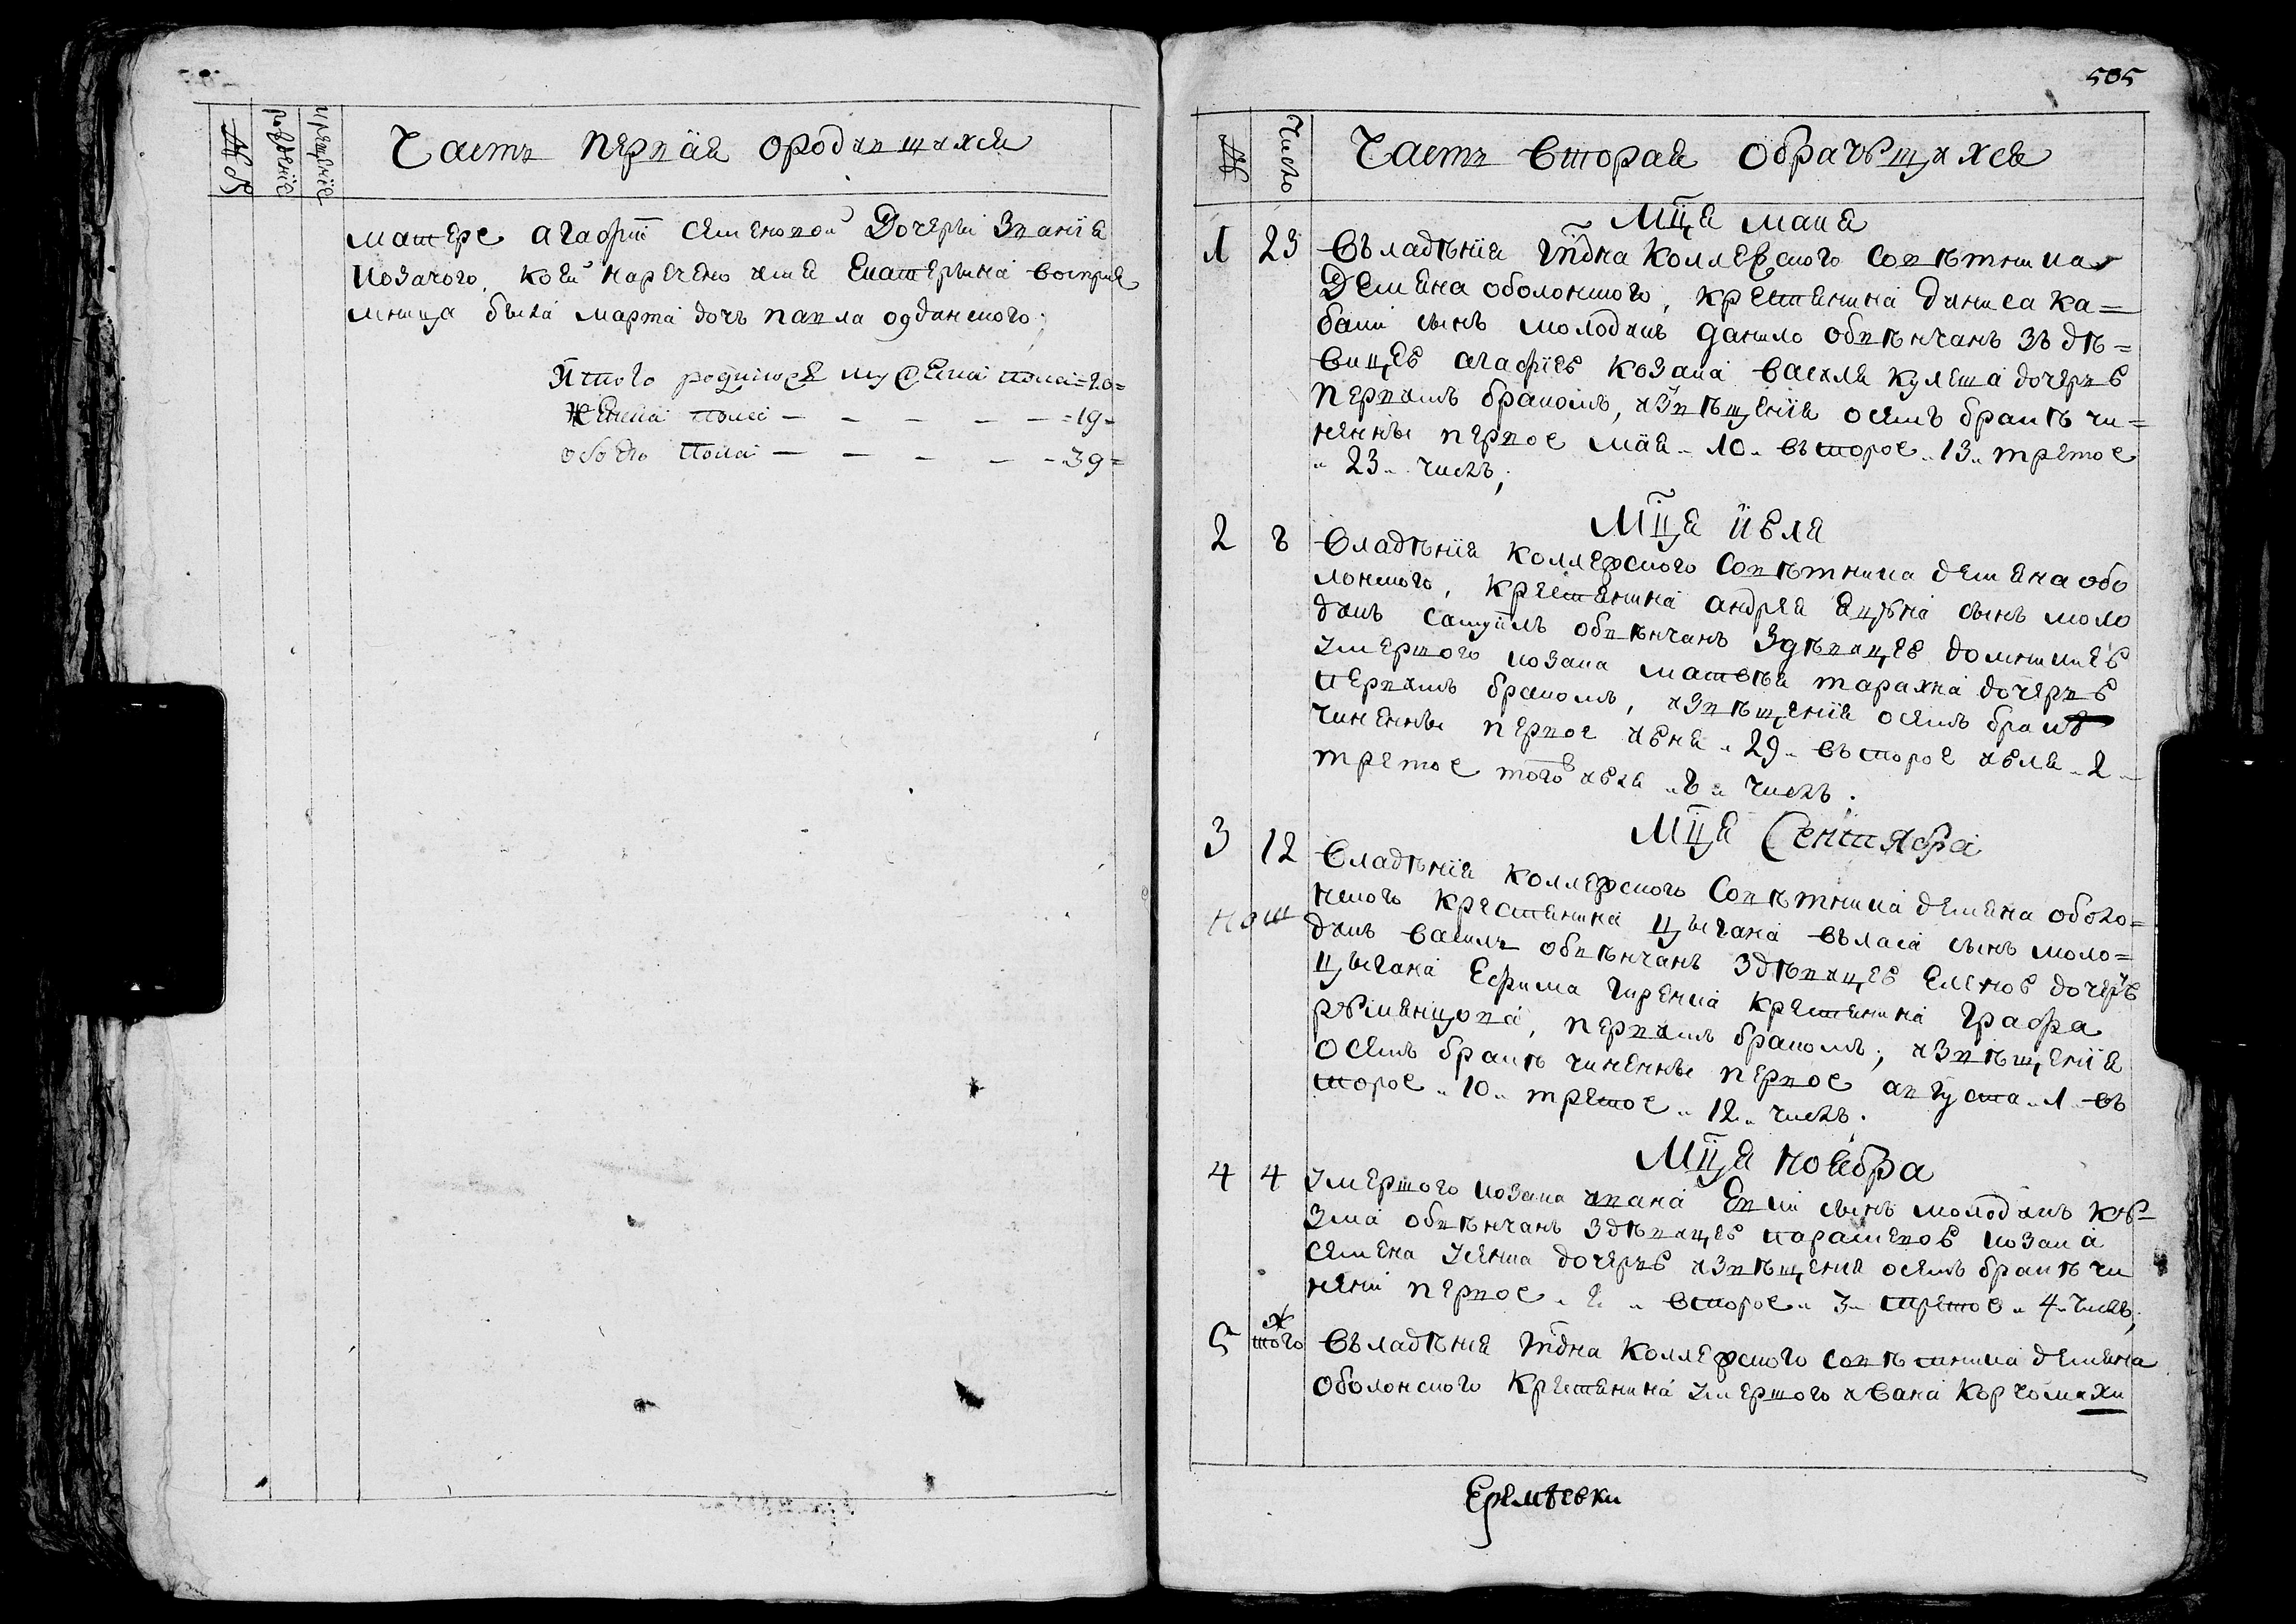 №
рождение
крещение
Часть первая о родившихся
матере агафии Семеновой Дочеры Звания
козачого, коей наречено имя Екатерина восприе
мница была марта дочь павла
Итого родилось мужеска пола =20=
Женска пола — — — — =19=
обоего пола — — — — =39=
505
№
Число
Часть вторая обрачущихся
Мца маия
1 23 въладения Гпдна коллежского Советника
Демяна оболонского, крестянина дениса ка=
баки сынъ молодикъ данило обвѣнчанъ зъ дѣ=
вицею агафиею козака василя кулеша дочерю
первимъ бракомъ, извѣщения осемъ бракѣ чи=
ненны первое мая 10 въторое 13 третое
23 числъ,
Мца июля
2 8 владѣния коллежского Советника демяна обо
лонского, крестянина андрея яцуна сынъ моло
дикъ самуилъ обвѣнчанъ здѣвицею домникию
умершого козака матвѣя тарахна дочерю
первимъ бракомъ, извѣщения осемъ браке
чиненны первое июня 29 въторое июля 2
третое того июля 8 числъ.
Мца Сентября
3 12 владѣния коллежского Советника демяна оболо=
нского крестянина цыгана въласа сынъ моло=
дикъ василь обвѣнчанъ здѣвицею еленою дочерю
цыгана Ефима гиренка крестянина графа
румянцова, первимъ бракомъ; извѣщения
осемъ бракѣ чиненны первое августа 1 въ
торое 10 третое 12 числъ.
Мца ноября
4 4 умершого козака ивана сынъ молодикъ ку=
зма обвѣнчанъ здѣвицею параскевою козака
семена усенка дочерю извѣщения осемъ бракѣ чи
нени первое 2 второе 3 третое 4 числъ,
5 тогож въладѣния Гпдна коллежского советника демяна
оболонского крестянина умершого ивана корчомахи
Еремѣевки